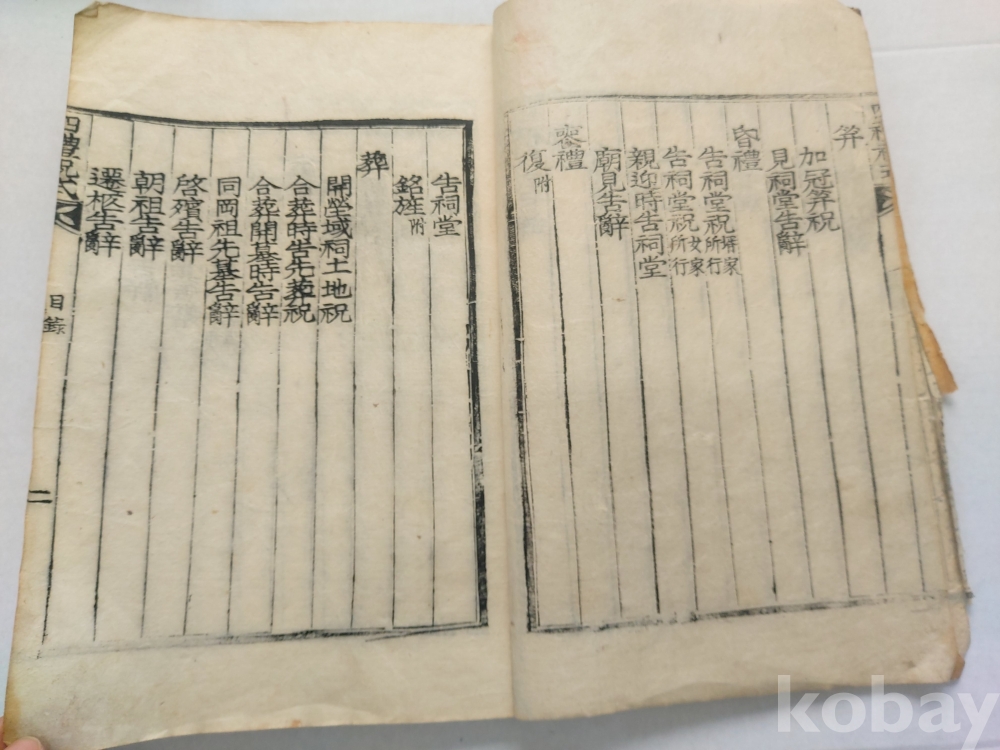 笄
加冠笄祝
見祠堂告辭
昏禮
告祠堂祝壻家所行
告祠堂祝女家所行
親迎時告祠堂
廟見告辭
喪禮
復附
告祠堂
銘旌附
葬
開塋域祠土地祝
合葬時告先葬祝
合葬開墓時告辭
同岡祖先墓告辭
啓殯告辭
朝祖告辭
遷柩告辭
四禮祝式
目錄
二
kobay